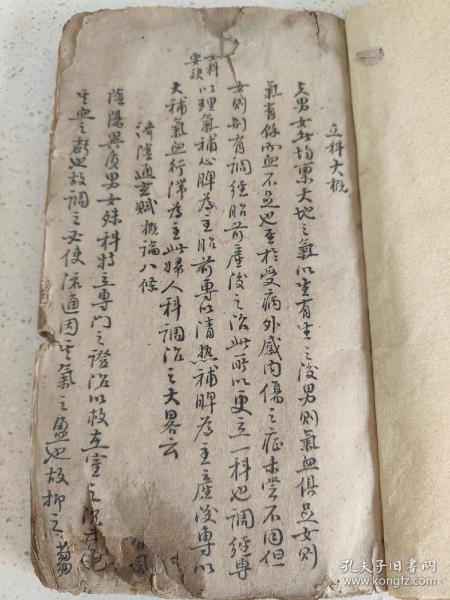 立科大概
夫男女皆均禀天地之氣以生有生之後男則氣血俱足女則
氣有餘而血不足也至於受病外感内傷之症未嘗不同但
女則别有調經胎前產後之治此所以更立一科也調經專
女科
要訣
以理氣補心脾為主胎前專以清熱補脾為主產後專以
大補氣血行滯為主此婦人科調治之大畧云
濟陰通玄賦 概論八條
陰陽異質男女殊科特立專門之證治以救在室之沉
之盛也故調之必使流通因其氣之盛也故抑之
孔夫子旧书网
kongfz.com